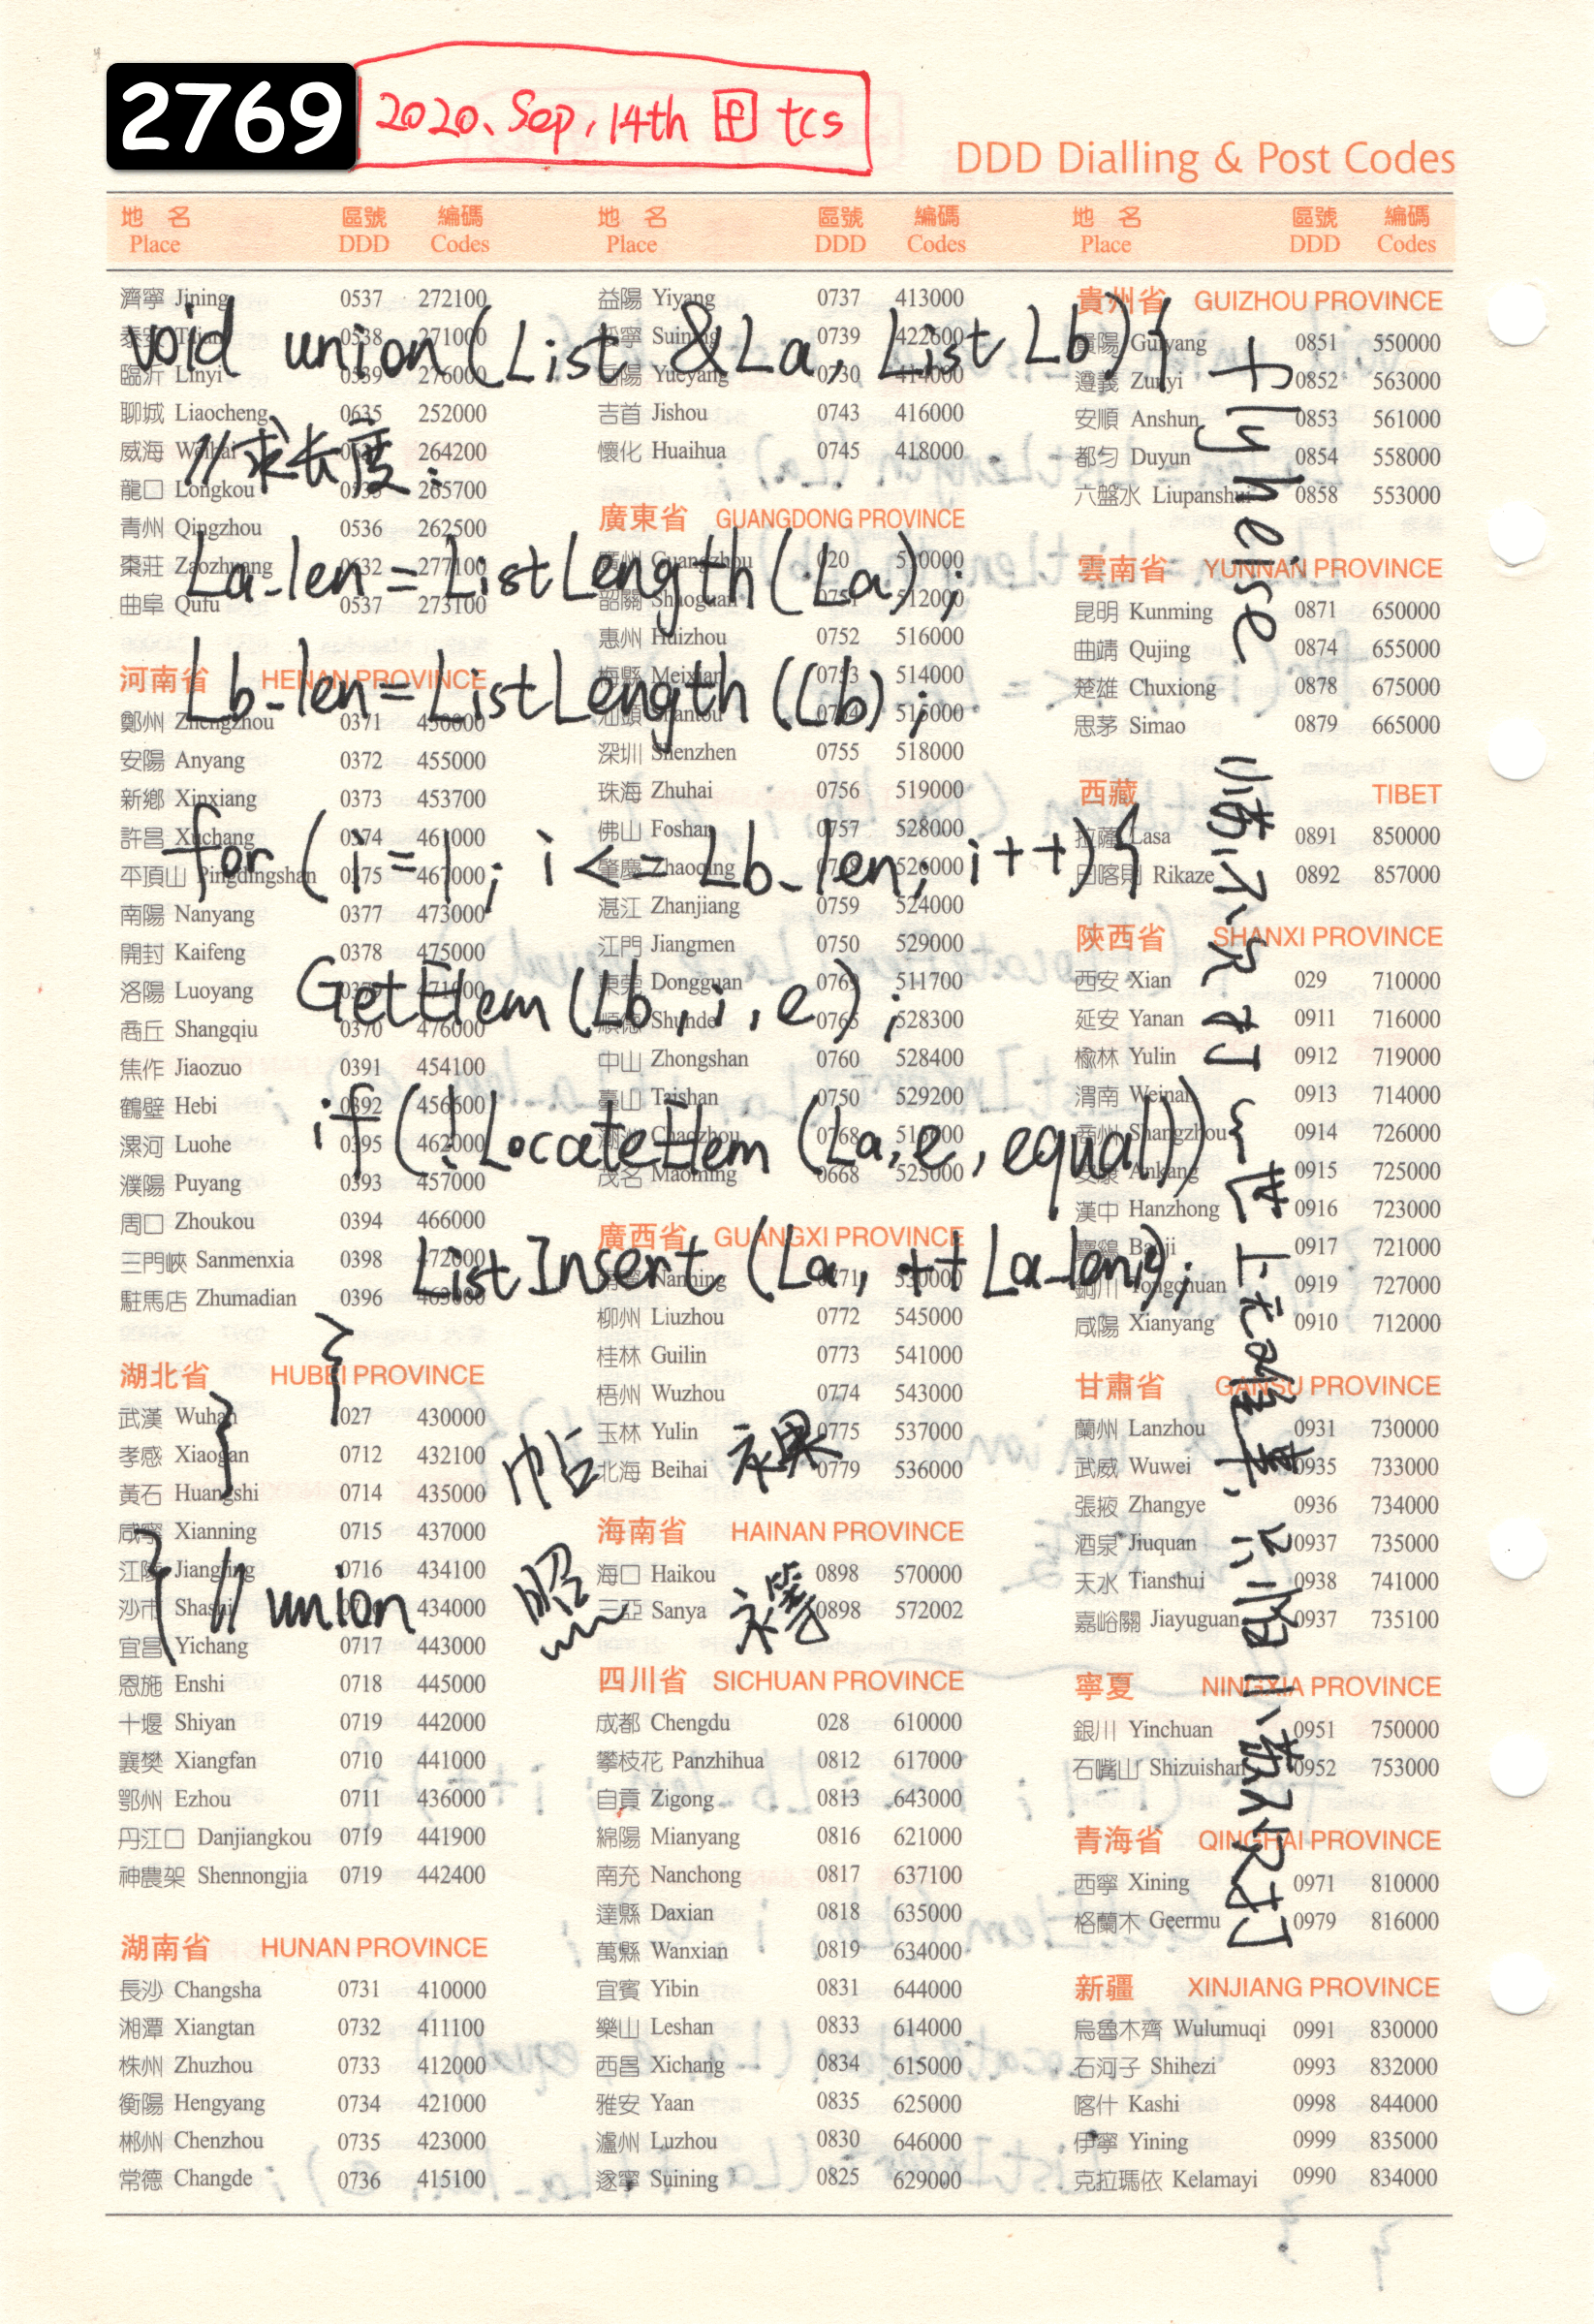 2769
2020、Sep,14th 田 tcs
DDD Dialling & Post Codes
地 名 區號 編碼 地 名 區號 編碼 地 名 區號 編碼
Place DDD Codes Place DDD Codes Place DDD Codes
void union(List &La, List Lb){
//求长度:
La_len=ListLength(La);
Lb_len=ListLength(Lb);
for(i=1; i<=Lb_len; i++){
GetElem(Lb,i,e);
if(!LocateElem(La,e,equal))
ListInsert(La,++La_len,e);
}
}
} // union
帖
照
濟寧 Jining 0537 272100
臨沂 Linyi 0539 276000
聊城 Liaocheng 0635 252000
威海 264200
龍口 Longkou 265700
青州 Qingzhou 0536 262500
棗莊 Zaozhuang 0632 277100
曲阜 Qufu 0537 273100
河南省 HENAN PROVINCE
鄭州 Zhengzhou 0371
安陽 Anyang 0372 455000
新鄉 Xinxiang 0373 453700
許昌 Xuchang 0374 461000
平頂山 Pingdingshan 0375 467000
南陽 Nanyang 0377 473000
開封 Kaifeng 0378 475000
洛陽 Luoyang
商丘 Shangqiu 0370 476000
焦作 Jiaozuo 0391 454100
鶴壁 Hebi 0392 456600
漯河 Luohe 0395 462000
濮陽 Puyang 0393 457000
周口 Zhoukou 0394 466000
三門峽 Sanmenxia 0398 472000
駐馬店 Zhumadian 0396 463000
湖北省 HUBEI PROVINCE
武漢 Wuhan 027 430000
孝感 Xiaogan 0712 432100
黃石 Huangshi 0714 435000
咸寧 Xianning 0715 437000
江陵 Jiangling 0716 434100
沙市 Shashi 434000
宜昌 Yichang 0717 443000
恩施 Enshi 0718 445000
十堰 Shiyan 0719 442000
襄樊 Xiangfan 0710 441000
鄂州 Ezhou 0711 436000
丹江口 Danjiangkou 0719 441900
神農架 Shennongjia 0719 442400
湖南省 HUNAN PROVINCE
長沙 Changsha 0731 410000
湘潭 Xiangtan 0732 411100
株州 Zhuzhou 0733 412000
衡陽 Hengyang 0734 421000
郴州 Chenzhou 0735 423000
常德 Changde 0736 415100
益陽 Yiyang 0737 413000
Suining 0739 422600
Yueyang 0730 414000
吉首 Jishou 0743 416000
懷化 Huaihua 0745 418000
廣東省 GUANGDONG PROVINCE
廣州 Guangzhou 020 510000
韶關 Shaoguan 0751 512000
惠州 Huizhou 0752 516000
梅縣 Meixian 0753 514000
汕頭 Shantou 0754 515000
深圳 Shenzhen 0755 518000
珠海 Zhuhai 0756 519000
佛山 Foshan 0757 528000
肇慶 Zhaoqing 526000
湛江 Zhanjiang 0759 524000
江門 Jiangmen 0750 529000
東莞 Dongguan 0769 511700
順德 Shunde 0765 528300
中山 Zhongshan 0760 528400
臺山 Taishan 0750 529200
潮州 Chaozhou 0768
茂名 Maoming 0668 525000
廣西省 GUANGXI PROVINCE
Nanning 0771 530000
柳州 Liuzhou 0772 545000
桂林 Guilin 0773 541000
梧州 Wuzhou 0774 543000
玉林 Yulin 0775 537000
北海 Beihai 0779 536000
海南省 HAINAN PROVINCE
海口 Haikou 0898 570000
三亞 Sanya 0898 572002
四川省 SICHUAN PROVINCE
成都 Chengdu 028 610000
攀枝花 Panzhihua 0812 617000
自貢 Zigong 0813 643000
綿陽 Mianyang 0816 621000
南充 Nanchong 0817 637100
達縣 Daxian 0818 635000
萬縣 Wanxian 0819 634000
宜賓 Yibin 0831 644000
樂山 Leshan 0833 614000
西昌 Xichang 0834 615000
雅安 Yaan 0835 625000
瀘州 Luzhou 0830 646000
遂寧 Suining 0825 629000
貴州省 GUIZHOU PROVINCE
貴陽 Guiyang 0851 550000
遵義 Zunyi 0852 563000
安順 Anshun 0853 561000
都勻 Duyun 0854 558000
六盤水 Liupanshui 0858 553000
雲南省 YUNNAN PROVINCE
昆明 Kunming 0871 650000
曲靖 Qujing 0874 655000
楚雄 Chuxiong 0878 675000
思茅 Simao 0879 665000
西藏 TIBET
拉薩 Lasa 0891 850000
日喀則 Rikaze 0892 857000
陝西省 SHANXI PROVINCE
西安 Xian 029 710000
延安 Yanan 0911 716000
榆林 Yulin 0912 719000
渭南 Weinan 0913 714000
商州 Shangzhou 0914 726000
安康 Ankang 0915 725000
漢中 Hanzhong 0916 723000
寶鷄 Baoji 0917 721000
銅川 Tongchuan 0919 727000
咸陽 Xianyang 0910 712000
甘肅省 GANSU PROVINCE
蘭州 Lanzhou 0931 730000
武威 Wuwei 0935 733000
張掖 Zhangye 0936 734000
酒泉 Jiuquan 0937 735000
天水 Tianshui 0938 741000
嘉峪關 Jiayuguan 0937 735100
寧夏 NINGXIA PROVINCE
銀川 Yinchuan 0951 750000
石嘴山 Shizuishan 0952 753000
青海省 QINGHAI PROVINCE
西寧 Xining 0971 810000
格蘭木 Geermu 0979 816000
新疆 XINJIANG PROVINCE
烏魯木齊 Wulumuqi 0991 830000
石河子 Shihezi 0993 832000
喀什 Kashi 0998 844000
伊寧 Yining 0999 835000
克拉瑪依 Kelamayi 0990 834000
世上无难事、只怕